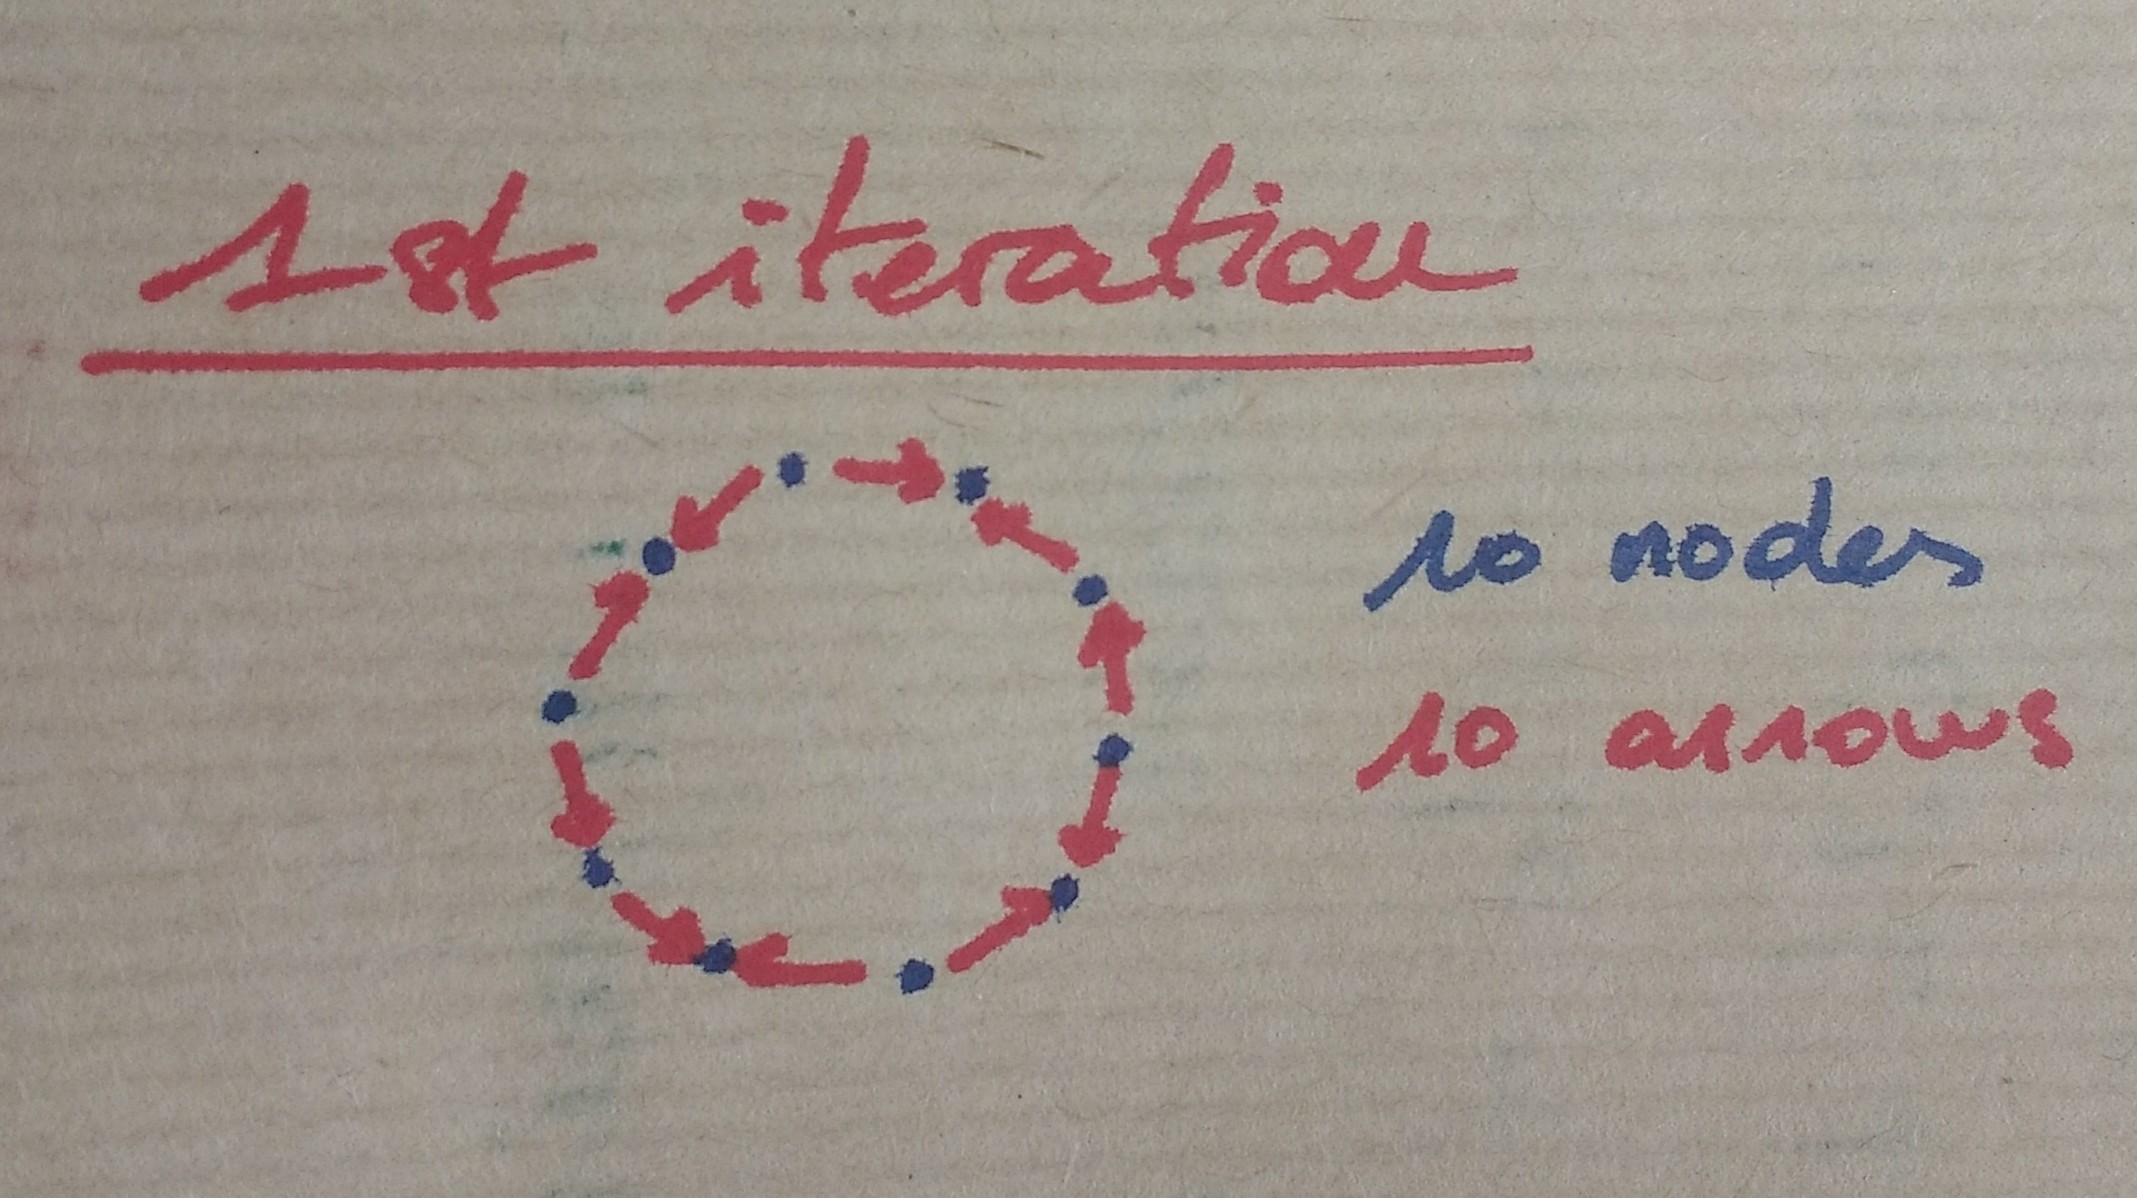 1st iteration
10 nodes
10 arrows